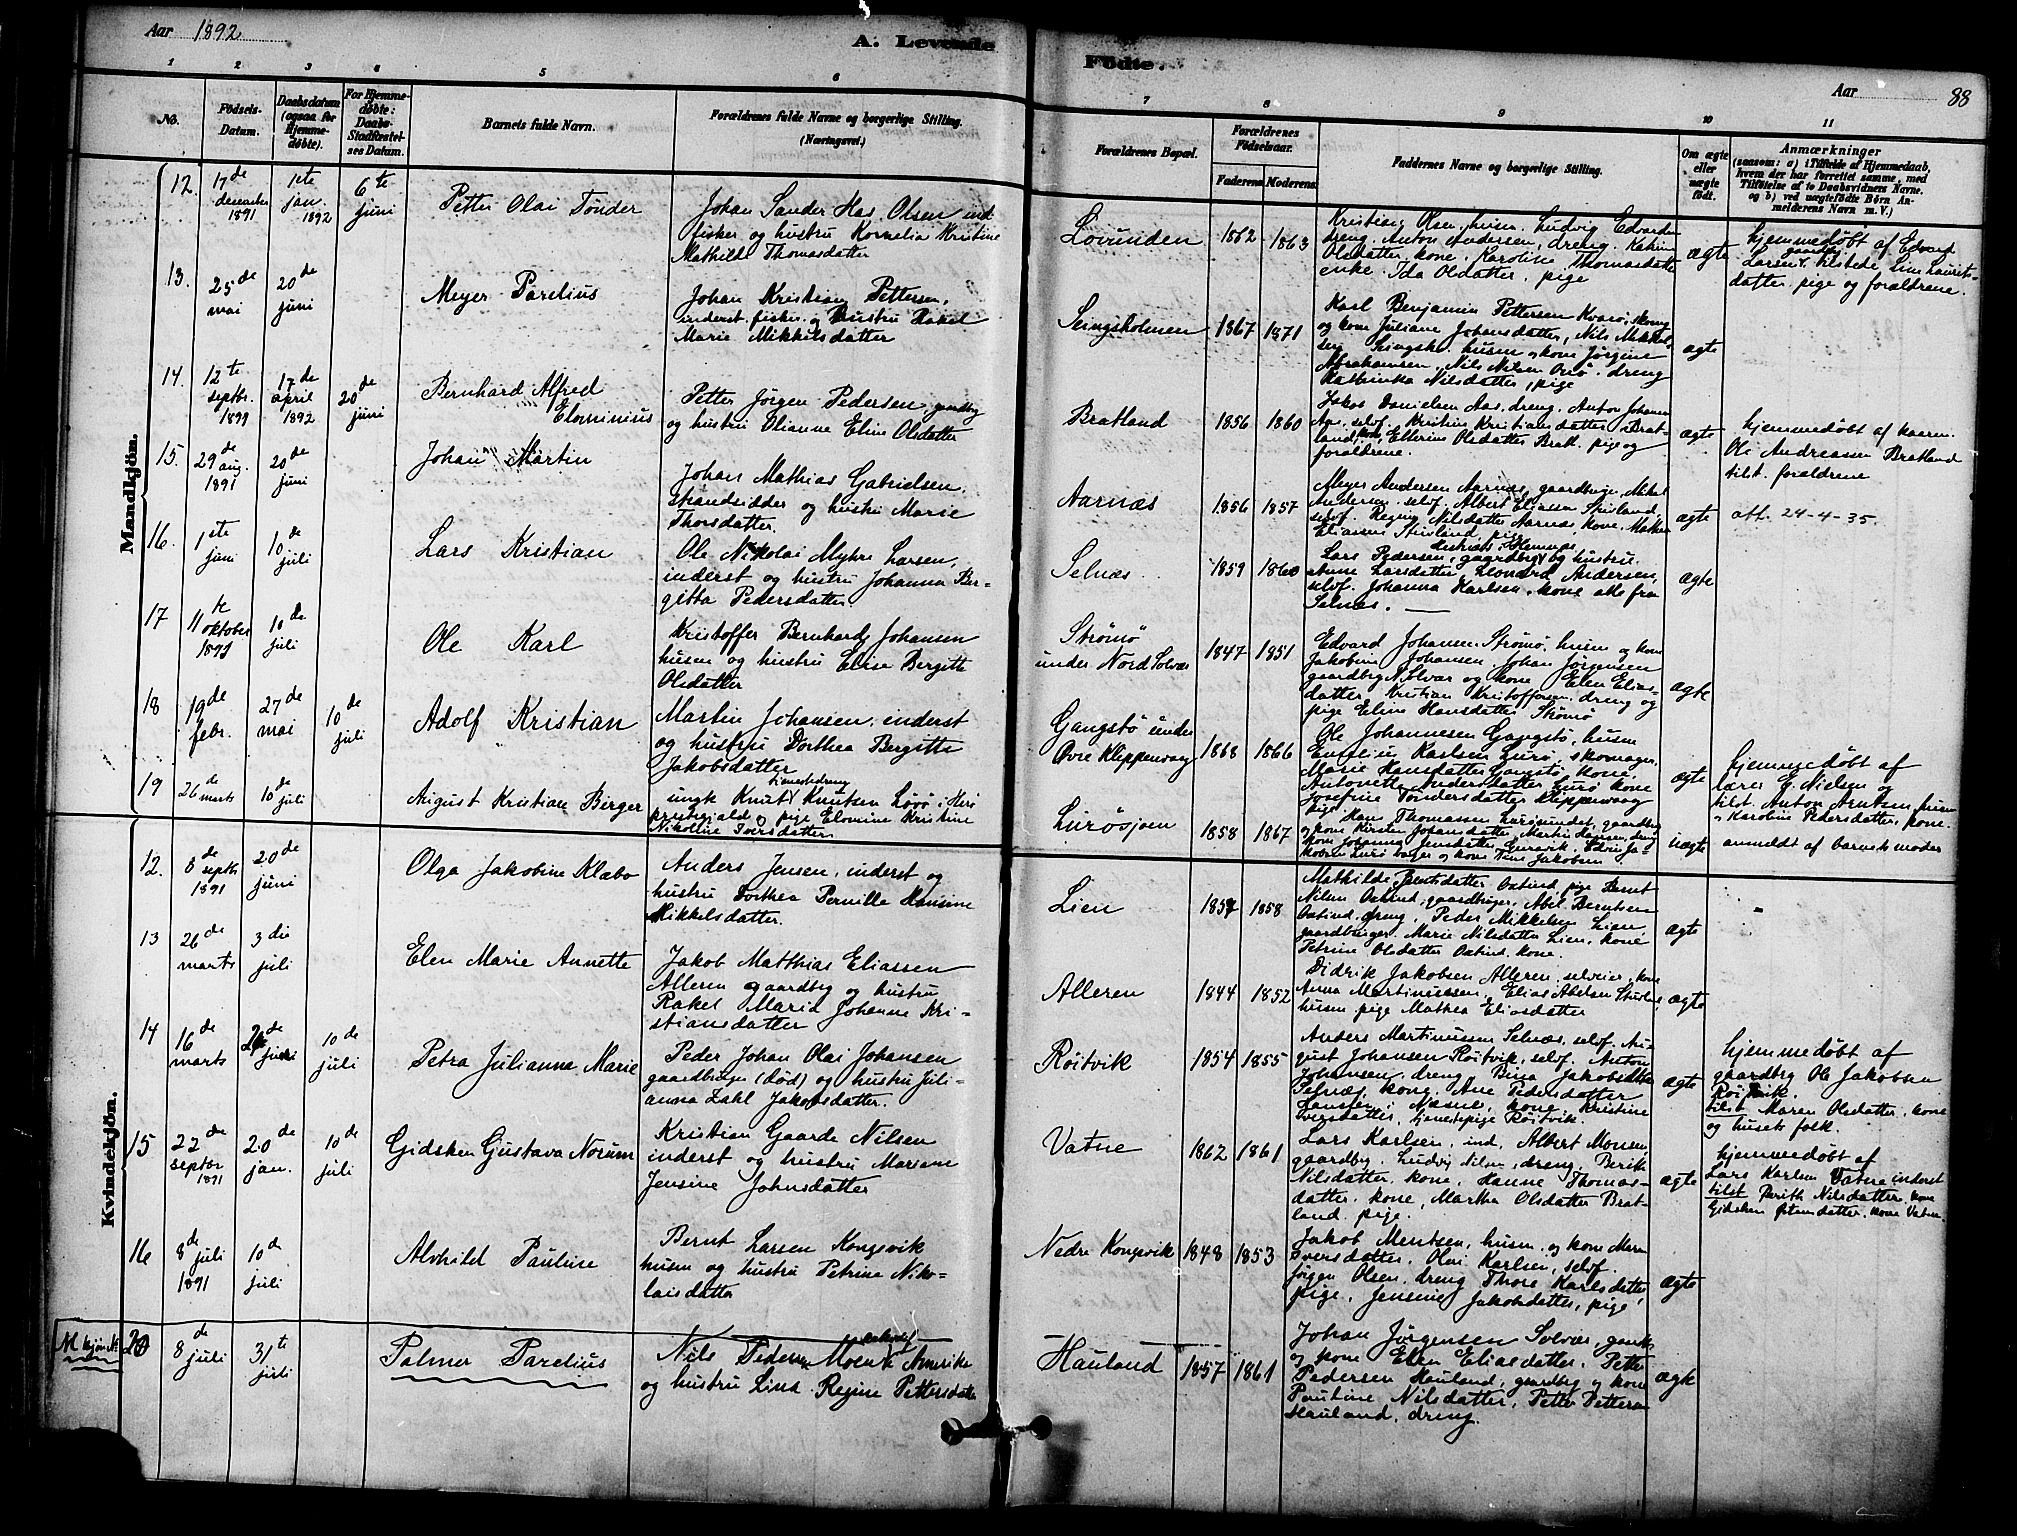 Aar 1892
A. Levende
Fødte.
Aar
88
1 2 3 4 5 6 7 8 9 10 11
No.
Fødsels-Datum.
Daabsdatum (ogsaa for Hjemmedøbte).
For Hjemmedøbte: Daabs-Stadfæstelses Datum.
Barnets fulde Navn.
Forældrenes fulde Navne og borgerlige Stilling. (Næringsvei.)
Forældrenes Bopæl.
Forældrenes Fødselsaar.
Faderens. Moderens.
Faddernes Navne og borgerlige Stilling.
Om ægte eller uægte født.
Anmærkninger
(saasom: a) i Tilfælde af Hjemmedaab, hvem der har forrettet samme, med Tilføielse af to Daabsvidners Navne, og b) ved uægtefødte Børn Anmelderens Navn m. V.)
Mandkjön.
12. 17de december 1891
1ste jan. 1892
6te juni
Petter Olai Tønder
Johan Sander Has Olsen ind.
fisker og hustru Kornelia Kristine
Mathilde Thomasdatter
Lovunden
1862 1863
Kristian Olsen husm. Ludvig Edvardsen
dreng. Anton Andersen, dreng. Katrine
Olsdatter kone. Karoline Thomasdatter
enke. Ida Olsdatter, pige
ægte
hjemmedøbt af Edvard
Larsen gaardbr. tilstede Line Laurits-
datter pige og forældrene.
13. 25de mai
20de juni
Meyer Parelius
Johan Kristian Pettersen,
inderst. fisker og hustru Rakel
Marie Mikkelsdatter
Seingsholmen
1867 1871
Karl Benjamin Pettersen Kvarø, skomg.
og kone Juliane Johansdatter, Nils Mikkel-
sen husm og kone Jørgine
Abrahamsen, Nils Nilsen dreng
Kathinka Nilsdatter, pige
ægte
14. 12te septbr. 1891
17de april 1892
20de juni
Bernhard Alfred
Elominius
Petter Jørgen Pedersen gaardbrg
og hustru Olianne Eline Olsdatter
Bratland
1856 1860
Jakob Danielsen Aas, dreng. Anton Johansen
selvf. Kristine Kristiansdatter Brat-
land kone, Ellerine Olsdatter Bratl. pige og
forældrene.
ægte
hjemmedøbt af kaarm.
Ole Andreassen Bratland
tilst. forældrene
15. 29de aug. 1891
20de juni
Johan Martin
Johan Mathias Gabrielsen,
strandsidder og hustru Marie
Thorsdatter
Aarnæs
1856 1857
Meyer Andersen Aarnæs, gaardbruge, Mikal
Andersen, selvf. Albert Eliassen Stuvland,
selvf. Regine Nilsdatter Aarnæs kone, Mathea
Eliassen Stuvland, pige
ægte
att. 24-4-35.
16. 1ste juni
10de juli
Lars Kristian
Ole Nikolai Myhre Larsen,
inderst og hustru Johanna Ber-
gitta Pedersdatter
Selnæs.
1859 1860
Lars Pedersen, gaardbrg og hustru
Anne Larsdatter, Leonard Andersen,
selvf. Johanna Karlsen, kone alle fra
Selnæs.
ægte
17 11te oktober 1891
10de juli
Ole Karl
Kristoffer Bernhard Johansen
husm og hustru Elise Bergitte
Olsdatter
Strømø
under Nord Solvær
1847 1851
Edvard Johansen Strømø, husm og kone
Jakobine Johansen. Johan Jørgensen
gaardbrg N Solvær og kone Elen Elias-
datter, Kristian Kristoffersen, dreng og
pige Eline Hansdatter Strømø
ægte
18 19de febr.
27de mai
10de juli
Adolf Kristian
Martin Johansen, inderst
og hustru Dorthea Bergitte
Jakobsdatter
Gangstø under
Øvre Klippenvaag
1868 1866
Ole Johannesen Gangstø, husm
Karlsen Lurø, skomager,
Marie Hansdatter Gangstø kone.
Antonette Andersdatter Lurø kone
Josefine Tøndersdatter Klippenvaag
pige
ægte
hjemmedøbt af
lærer E. Nielsen og
tilst. Anton Arntsen, husm
og Karoline Pedersdatter, kone.
19 26de marts
10de juli
August Kristian Birger
ungk Knut Knutsen Løvø i Herø
tjenestedreng
prestegjald og pige Elomine Kristine
Nikoline Iversdatter
Lurøsjøen
1858 1867
Thomassen Lurøsundet, gaardbrg
og kone Kirsten Johansdatter, Martin Hansen, dreng
Johanna Jensdatter,
og kone Jakobsen
uægte
anmeldt af barnets moder
Kvindekjön.
12. 8de septbr 1891
20de juni
Olga Jakobine Klæbo
Anders Jensen, inderst og
hustru Dorthea Pernille Hansine
Mikkelsdatter.
Lien
1857 1858
Mathilde Berntsdatter Oxtind, pige Bernt
Nilsen Oxtind, gaardbruger, Abel Berntsen
Oxtind, dreng, Peder Mikkelsen Lien,
gaardbruger, Marie Nilsdatter Lien, kone
Petrine Olsdatter Oxtind. kone.
ægte
13 26de marts
3die juli
Elen Marie Annette
Jakob Matthias Eliassen
Alleren gaardbrg og hustru
Rakel Maria Johanne Kri-
stiansdatter
Alleren
1844 1852
Didrik Jakobsen Alleren, selveier, kone
Anna Martinussen, Elias Abelsen
husm. pige Mathea Eliasdatter
ægte
14 16de marts
26de juni
10de juli
Petra Julianne Marie
Peder Johan Olai Johansen
gaardbruger (død) og hustru Juli-
anna Zahl Jakobsdatter.
Røitvik
1854 1855
Anders Martinussen Selnæs, selvf. Au-
gust Johansen Røitvik, selvf. Anton
Johansen, dreng, Berea Jakobsdatter
Selnæs, kone, Ane Pedersdatter
kone Kristine
Iversdatter, tjenestepige Røitvik.
ægte
hjemmedøbt af
gaardbrg Ole Jakobsen
Røitvik.
tilst Maren Olsdatter, kone
og husets folk.
15 22de septbr 1891
20de jan.
10de juli
Gidsken Gustava Norum
Kristian Gaarde Nilsen
inderst og hustru Mariane
Jensine Johnsdatter
Vatne
1862 1861
Lars Karlsen, ind, Albert Monsen,
gaardbrg, Ludvig Nilsen, dreng, Berith
Nilsdatter, kone, Hanne Thomas-
datter, kone, Martha Olsdatter Brat-
land, pige.
ægte
hjemmedøbt af
Lars Karlsen Vatne inderst
tilst Berith Nilsdatter, kone
Gidsken Østensdatter, kone Vatne.
16 8de juli 1891
10de juli
Alvhild Pauline
Bernt Larsen Kongsvik
husm og hustru Petrine Niko-
laisdatter
Nedre Kongsvik
1848 1853
Jakob Mentsen, husm. og kone Maren
Iversdatter, Olai Karlsen, selvf.
Jørgen Olsen, dreng Thora Karlsdatter,
pige, Jensine Jakobsdatter, pige,
ægte
M kjøn No 20
8de juli
31te juli
Palmer Parelius
Nils Pedersen Moen Amerika
og hustru Lina Regine Pettersdatter
Hauland
1857 1861
Johan Jørgensen Solvær, gaardb
og kone Elen Eliasdatter, Petter
Pedersen Hauland, gaardbrg og kone
Pauline Nilsdatter, Petter Pettersen
Hauland, dreng.
ægte